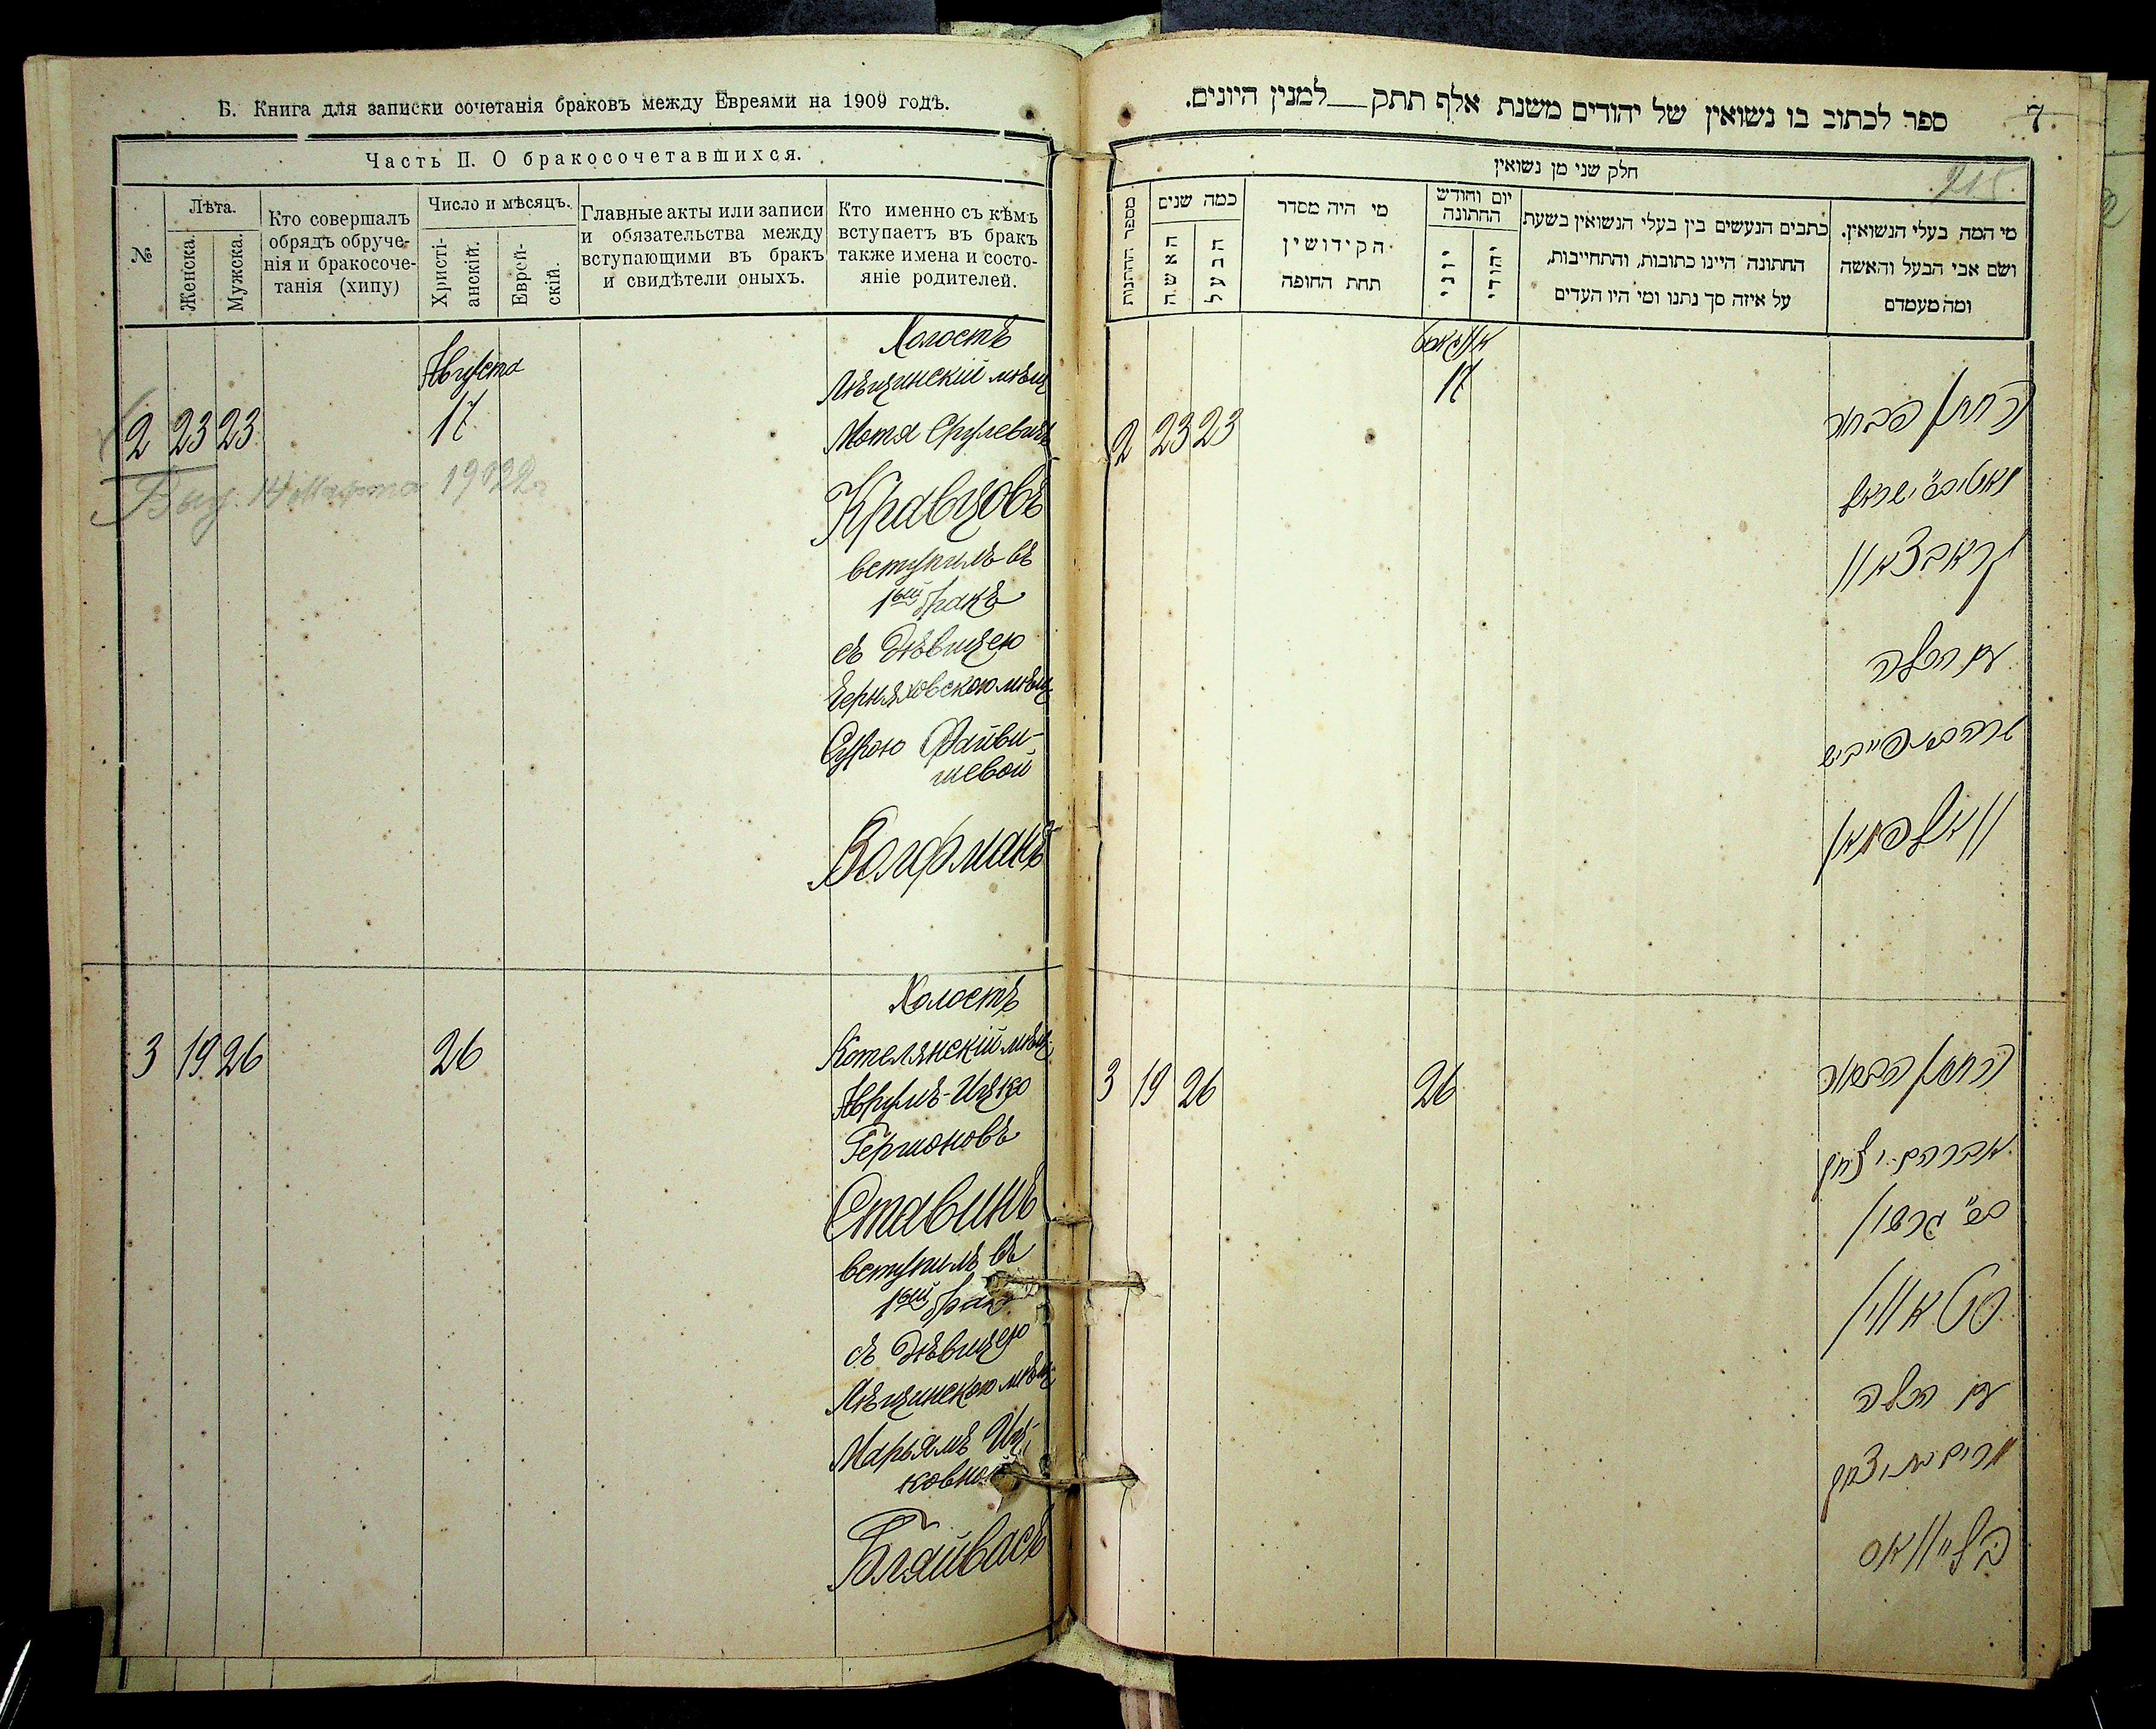 Б. Книга для записки сочетанія браковъ между Евреями на 1909 годъ.
Часть II. О бракосочетавшихся.
№
Лѣта.
Женска.
Мужска.
Кто совершалъ
обрядъ обруче-
нія и бракосоче-
танія (хипу)
Число и мѣсяцъ.
Христі-
анскій.
Еврей-
скій.
Главные акты или записи
и обязательства между
вступающими въ бракъ
и свидѣтели оныхъ.
Кто именно съ кѣмъ
вступаетъ въ бракъ
также имена и состо-
яніе родителей.
Августа
2 23 23 17
Выд. 14 Марта 1922 г
Холостъ
Лѣщинскій мѣщ
Мотя Срулевичъ
Кравцовъ
вступилъ въ
1ый бракъ
съ дѣвицею
Черняховскою мѣщ
Суркою Файви-
шевой
Волфманъ
3 19 26 26
Холостъ
Котелянскій мѣщ.
Аврумъ-Ицко
Гершоновъ
Ставинъ
вступилъ въ
1ый бракъ
съ дѣвицею
Лѣщинскою мѣщ.
Марьямъ Иц-
ковной
Бляйвасъ
7
ספר לכתוב בו נשואין של יהודים משנת אלף תתק — למנין היונים.
215
חלק שני מן נשואין
מספר החתונות
כמה שנים
האשה
הבעל
מי היה מסדר
הקידושין
תחת החופה
יום וחודש
החתונה
יוני
יהודי
כתבים הנעשים בין בעלי הנשואין בשעת
החתונה היינו כתובות, והתחייבות,
על איזה סך נתנו ומי היו העדים
מי המה בעלי הנשואין.
ושם אבי הבעל והאשה
ומה מעמדם
אווגוסט
2 23 23 17
החתן הבחור
ישראל
קראבצאוו
עם הכלה
שרה פייביש
וואלפמאן
3 19 26 26
החתן הבחור
אברהם יצחק
גרשון
סטאווין
עם הכלה
מרים יצחק
בלייוואס